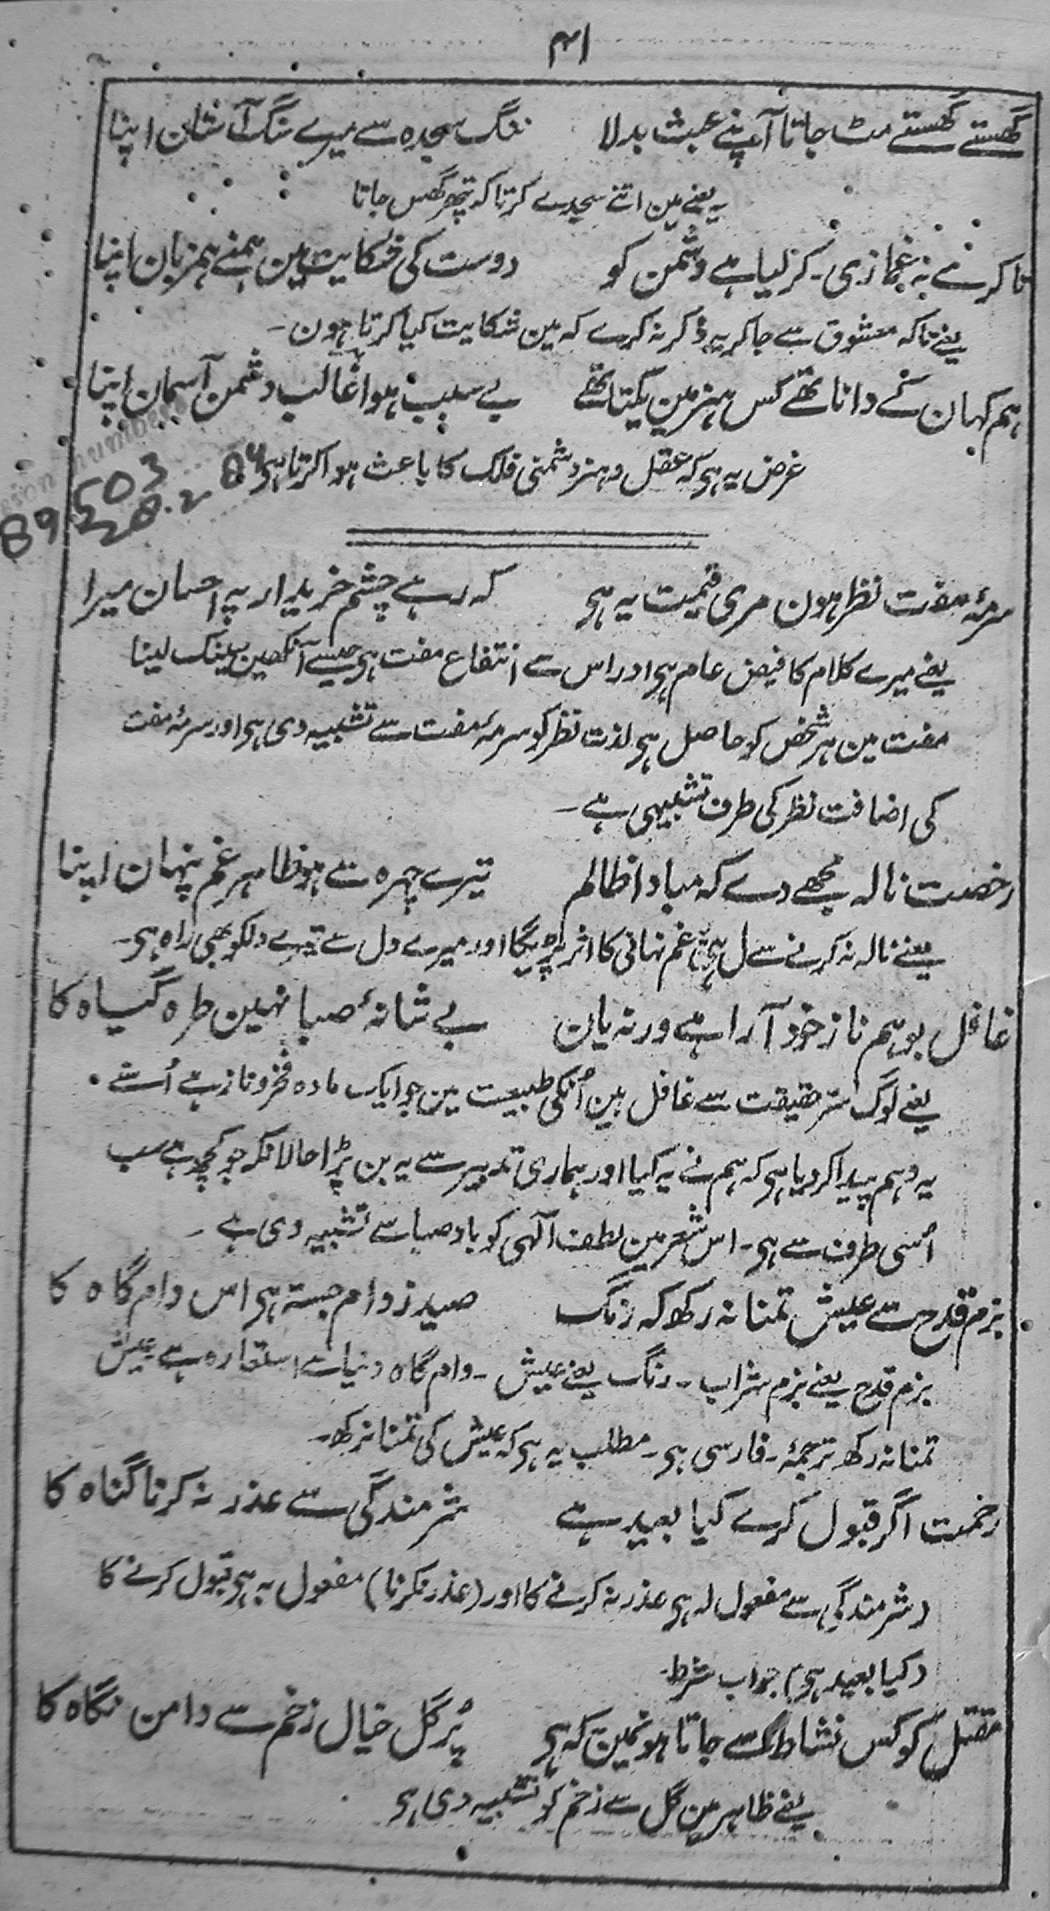 ۴۱
گھستے گھستے مٹ جاتا آپنے عبث بدلا ننگ سجدہ سے میرے سنگ آستان اپنا
یعنے مین اتنے سجدے کرتا کہ پتھر گھس جاتا
تا کرے نہ غمازی۔ کرلیا ہے دشمن کو دوست کی شکایت مین ہمنے ہمزبان اپنا
یعنے تاکہ معشوق سے جاکر یہ ذکر نہ کرے کہ مین شکایت کیا کرتا ہون۔
ہم کہان کے دانا تھے کس ہنر مین یکتا تھے بے سبب ہوا غالب دشمن آسمان اپنا
غرض یہ ہو کہ عقل و ہنر دشمنی فلک کا باعث ہوا کرتا ہو
89.503
سرمۂ مفت نظر ہون مری قیمت یہ ہو کہ رہے چشم خریدار پہ احسان میرا
یعنے میرے کلام کا فیض عام ہو اور اس سے انتفاع مفت ہو جیسے آنکھین سینک لینا
مفت مین ہر شخص کو حاصل ہو لذت نظر کو سرمۂ مفت سے تشبیہ دی ہو اور سرمۂ مفت
کی اضافت نظر کی طرف تشبیہی ہے۔
رخصت نالہ مجھے دے کہ مبادا ظالم تیرے چہرہ سے ہو ظاہر غم پنہان اپنا
یعنے نالہ نہ کرنے سے غم نہانی کا اثر پڑیگا اور میرے دل سے تیرے دلکو بھی راہ ہو۔
غافل بوہم ناز خود آرا ہے ورنہ یان بے شانۂ صبا نہین طرہ گیاہ کا
یعنے لوگ سر حقیقت سے غافل ہین اُنکی طبیعت مین جو ایک مادہ فخر و ناز ہے اُسنے
یہ وہم پیدا کردیا ہو کہ ہم نے یہ کیا اور ہماری تدبیر سے یہ بن پڑا حالانکہ جو کچھ ہے سب
اُسی طرف سے ہو۔ اس شعر مین لطف آلہی کو باد صبا سے تشبیہ دی ہے۔
بزم قدح سے عیش تمنا نہ رکھ کہ رنگ صید ز دام جستہ ہو اس دام گاہ کا
بزم قدح یعنے بزم شراب۔ رنگ یعنے عیش۔ دام گاہ دنیا سے استعارہ ہے عیش
تمنا نہ رکھ ترجمۂ۔ فارسی ہو۔ مطلب یہ ہو کہ عیش کی تمنا نہ رکھ۔
رحمت اگر قبول کرے کیا بعید ہے شرمندگی سے عذر نہ کرنا گناہ کا
(شرمندگی سے مفعول لہ ہو عذر نہ کرنے کا اور (عذر نکرنا) مفعول بہ ہو قبول کرنے کا
(کیا بعید ہو) جواب شرط۔
مقتل کو کس نشاط سے جاتا ہونمین کہ ہو پُر گل خیال زخم سے دامن نگاہ کا
یعنے ظاہر مین گل سے زخم کو تشبیہ دی ہو